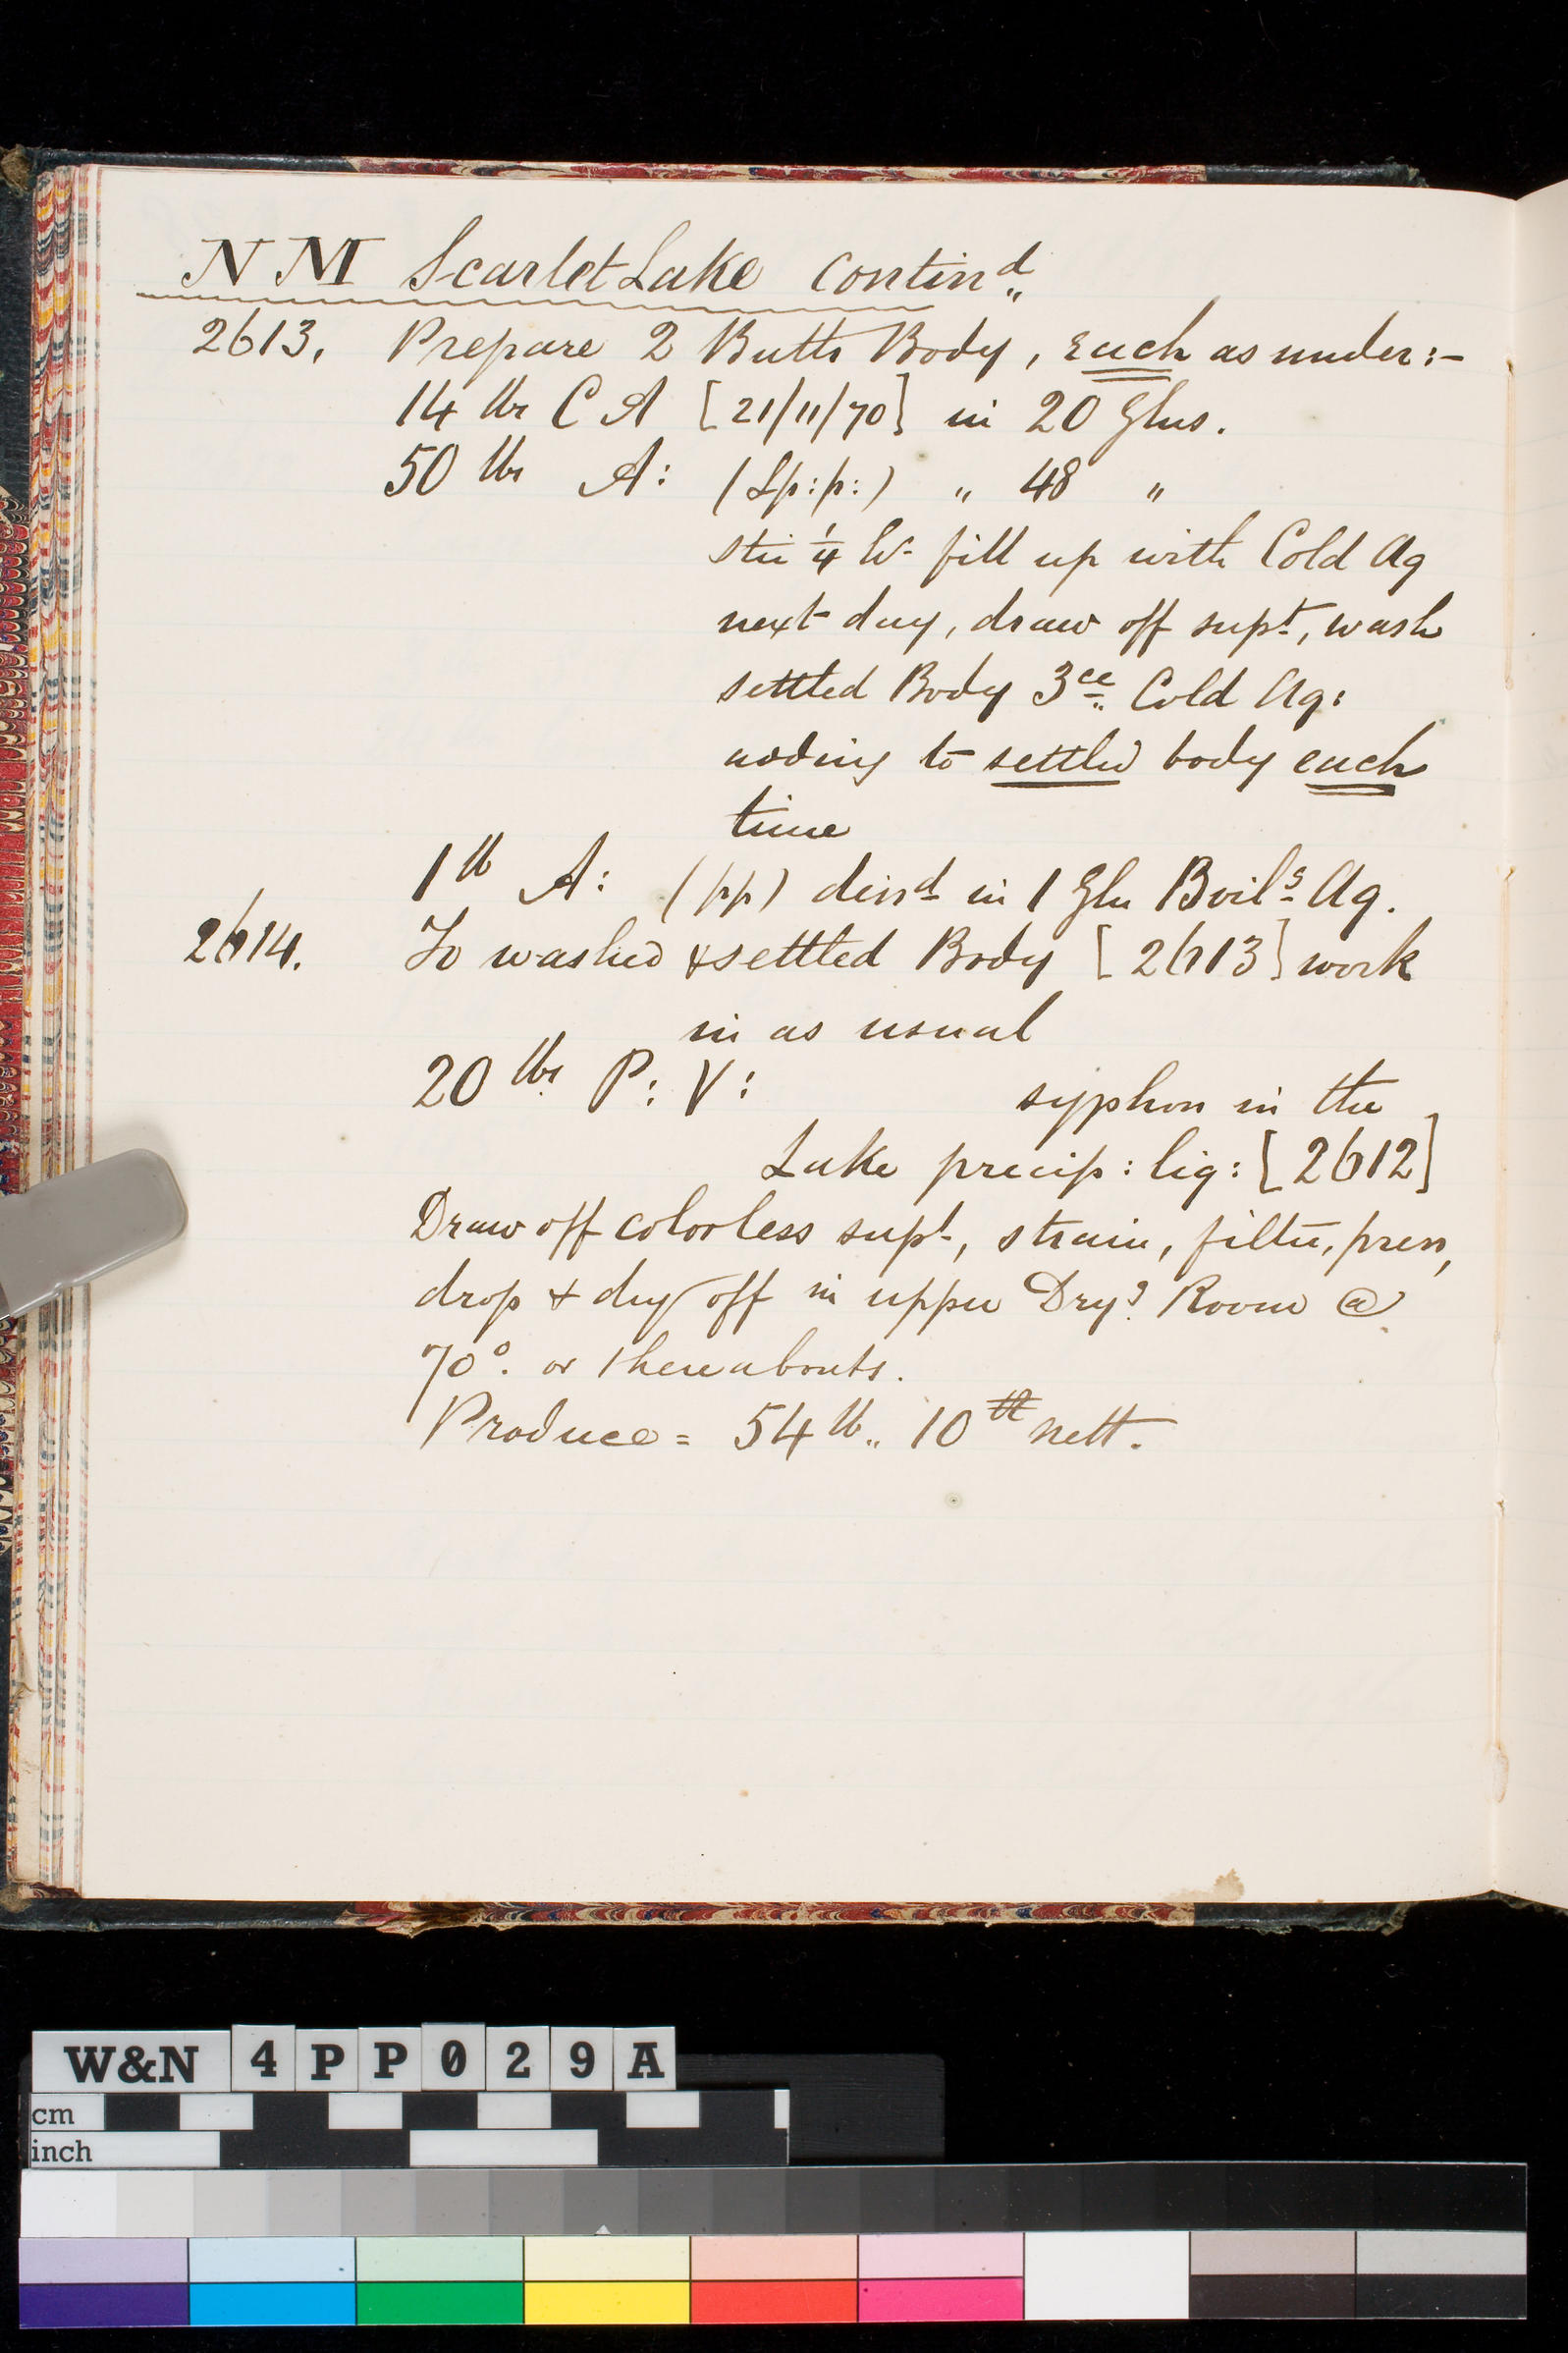 N M Scarlet Lake contind
2613. Prepare 2 Butts Body, Each as under:-
14 lbs C A [21/11/70] in 20 Glns.
50 lbs A: (Lp:p:) " 48 "
stir 1/4 hr fill up with Cold Aq
next day, draw off supt, wash
settled Body 3ce Cold Aq:
adding to settled body each
time
1 lb A: (pp) dissd in 1 Gln Boilg Aq.
2614. To washed & settled Body [2613] work
in as usual
20 lbs P: V: syphon in the
Lake precip: liq: [2612]
Draw off colorless supt, strain, filter, press,
drop & dry off in upper Dryg Room @
70°. or thereabouts.
Produce = 54 lb 10 nett.
W&N 4PP029A
cm
inch